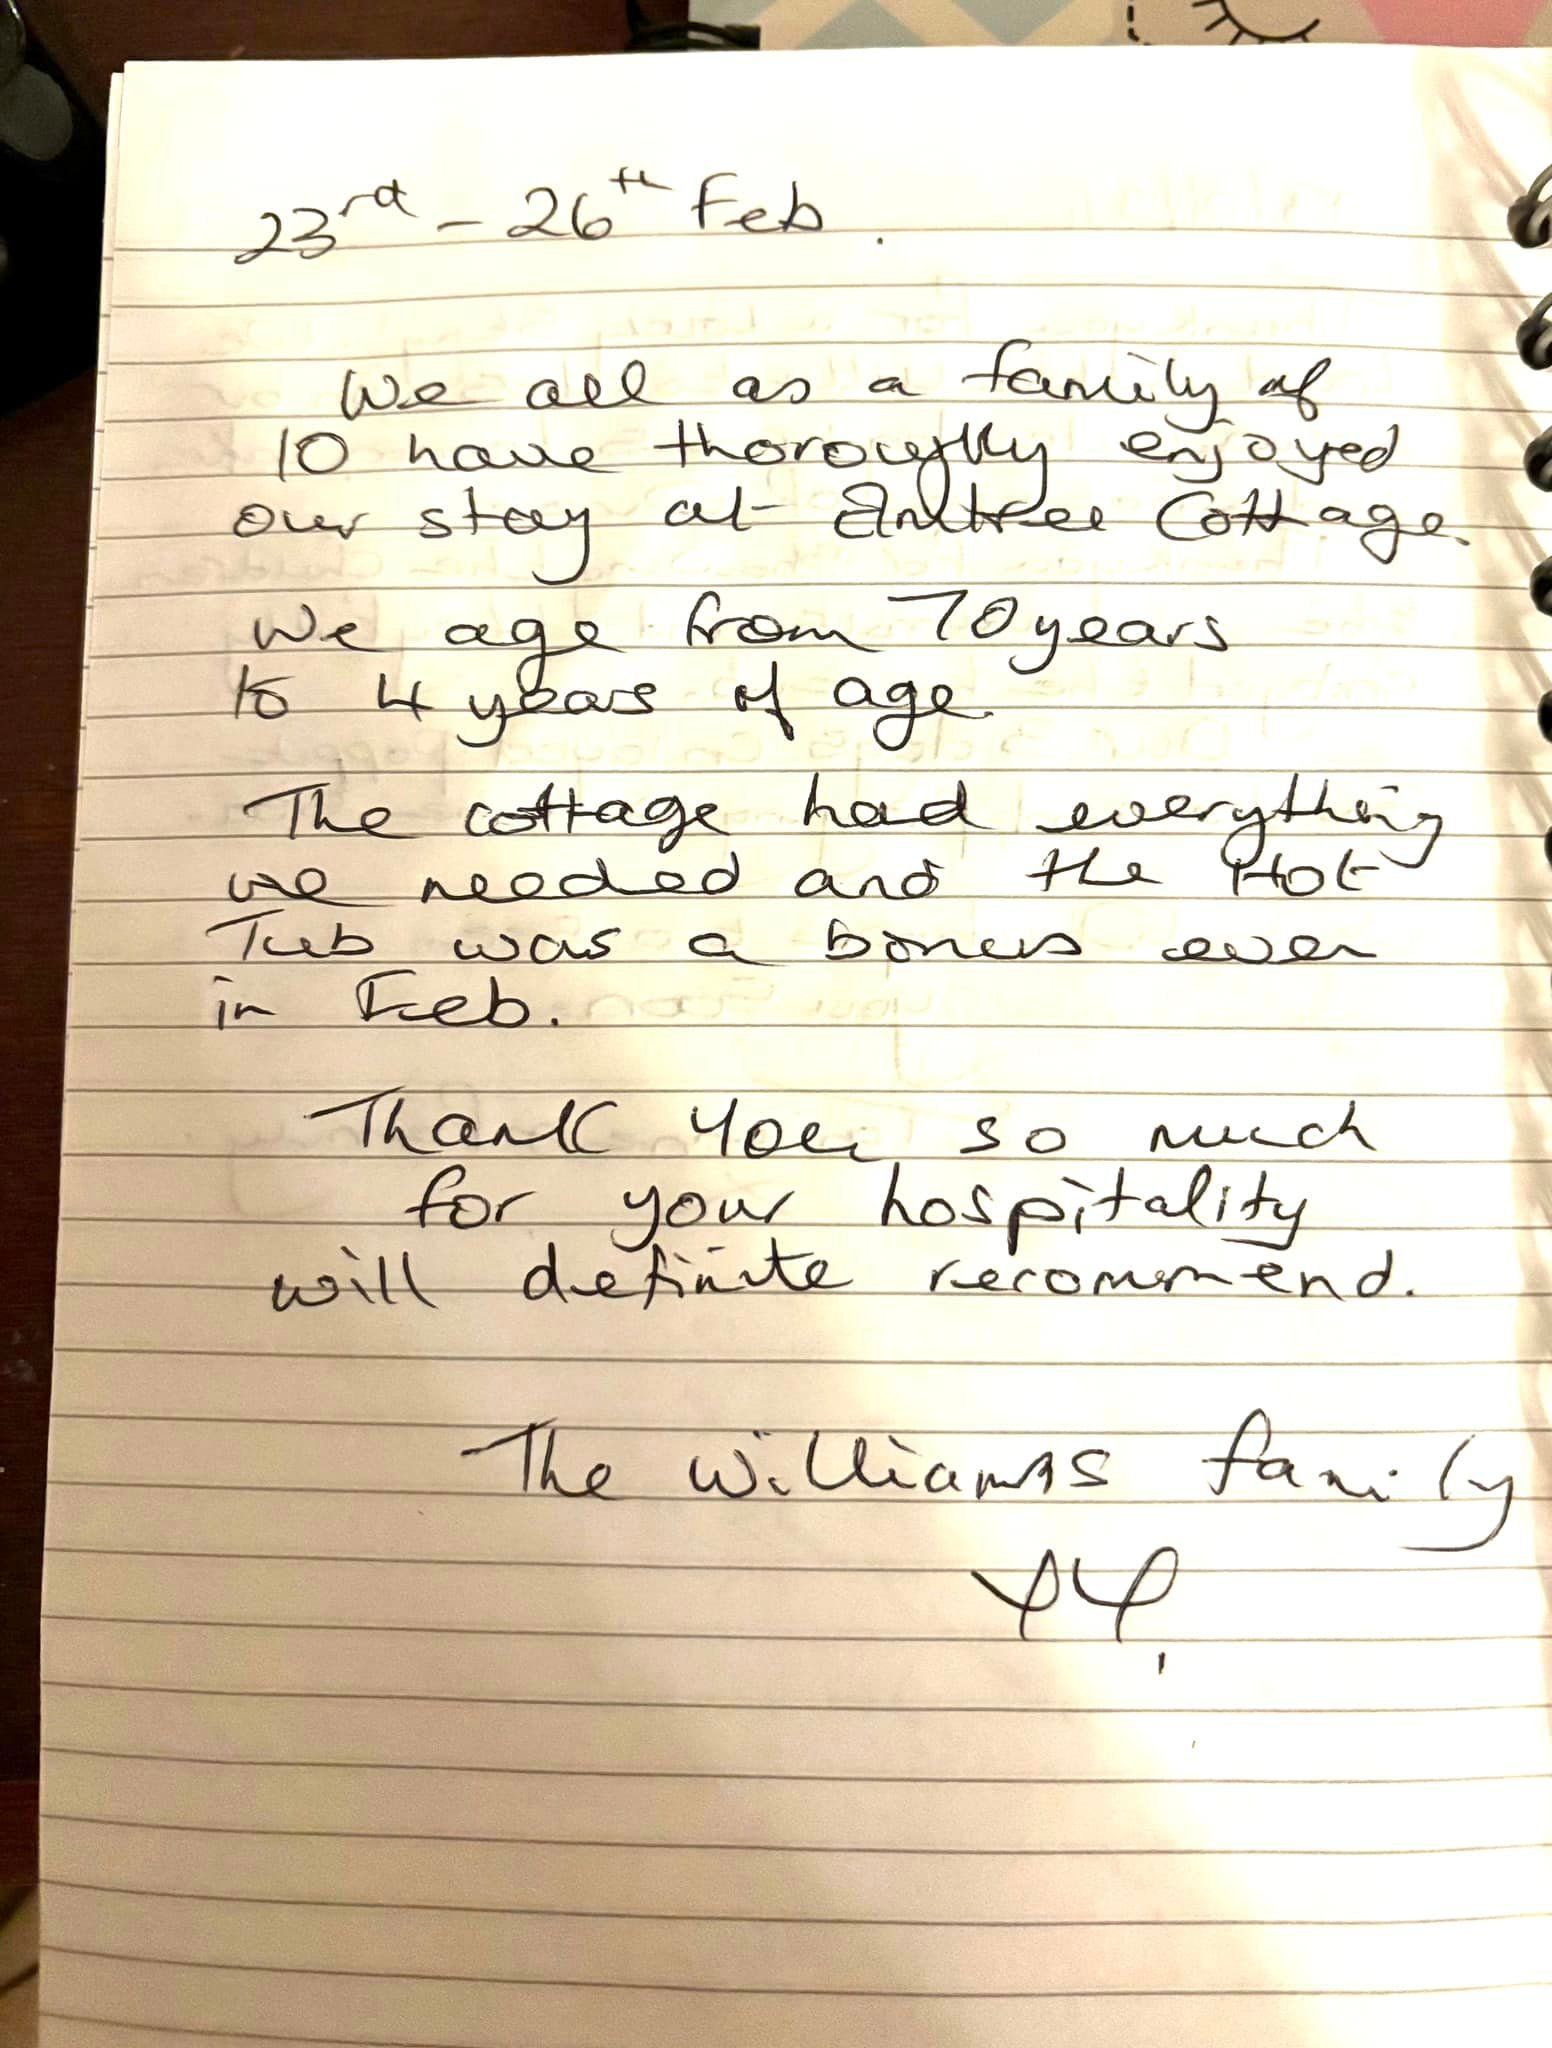 23rd - 26th Feb.
We all as a family of
10 have thoroughly enjoyed
our stay at Cottage.
We age from 70 years
to 4 years of age.
The cottage had everything
we needed and the Hot
Tub was a bonus even
in Feb.
Thank you so much
for your hospitality
will definite recommend.
The Williams family